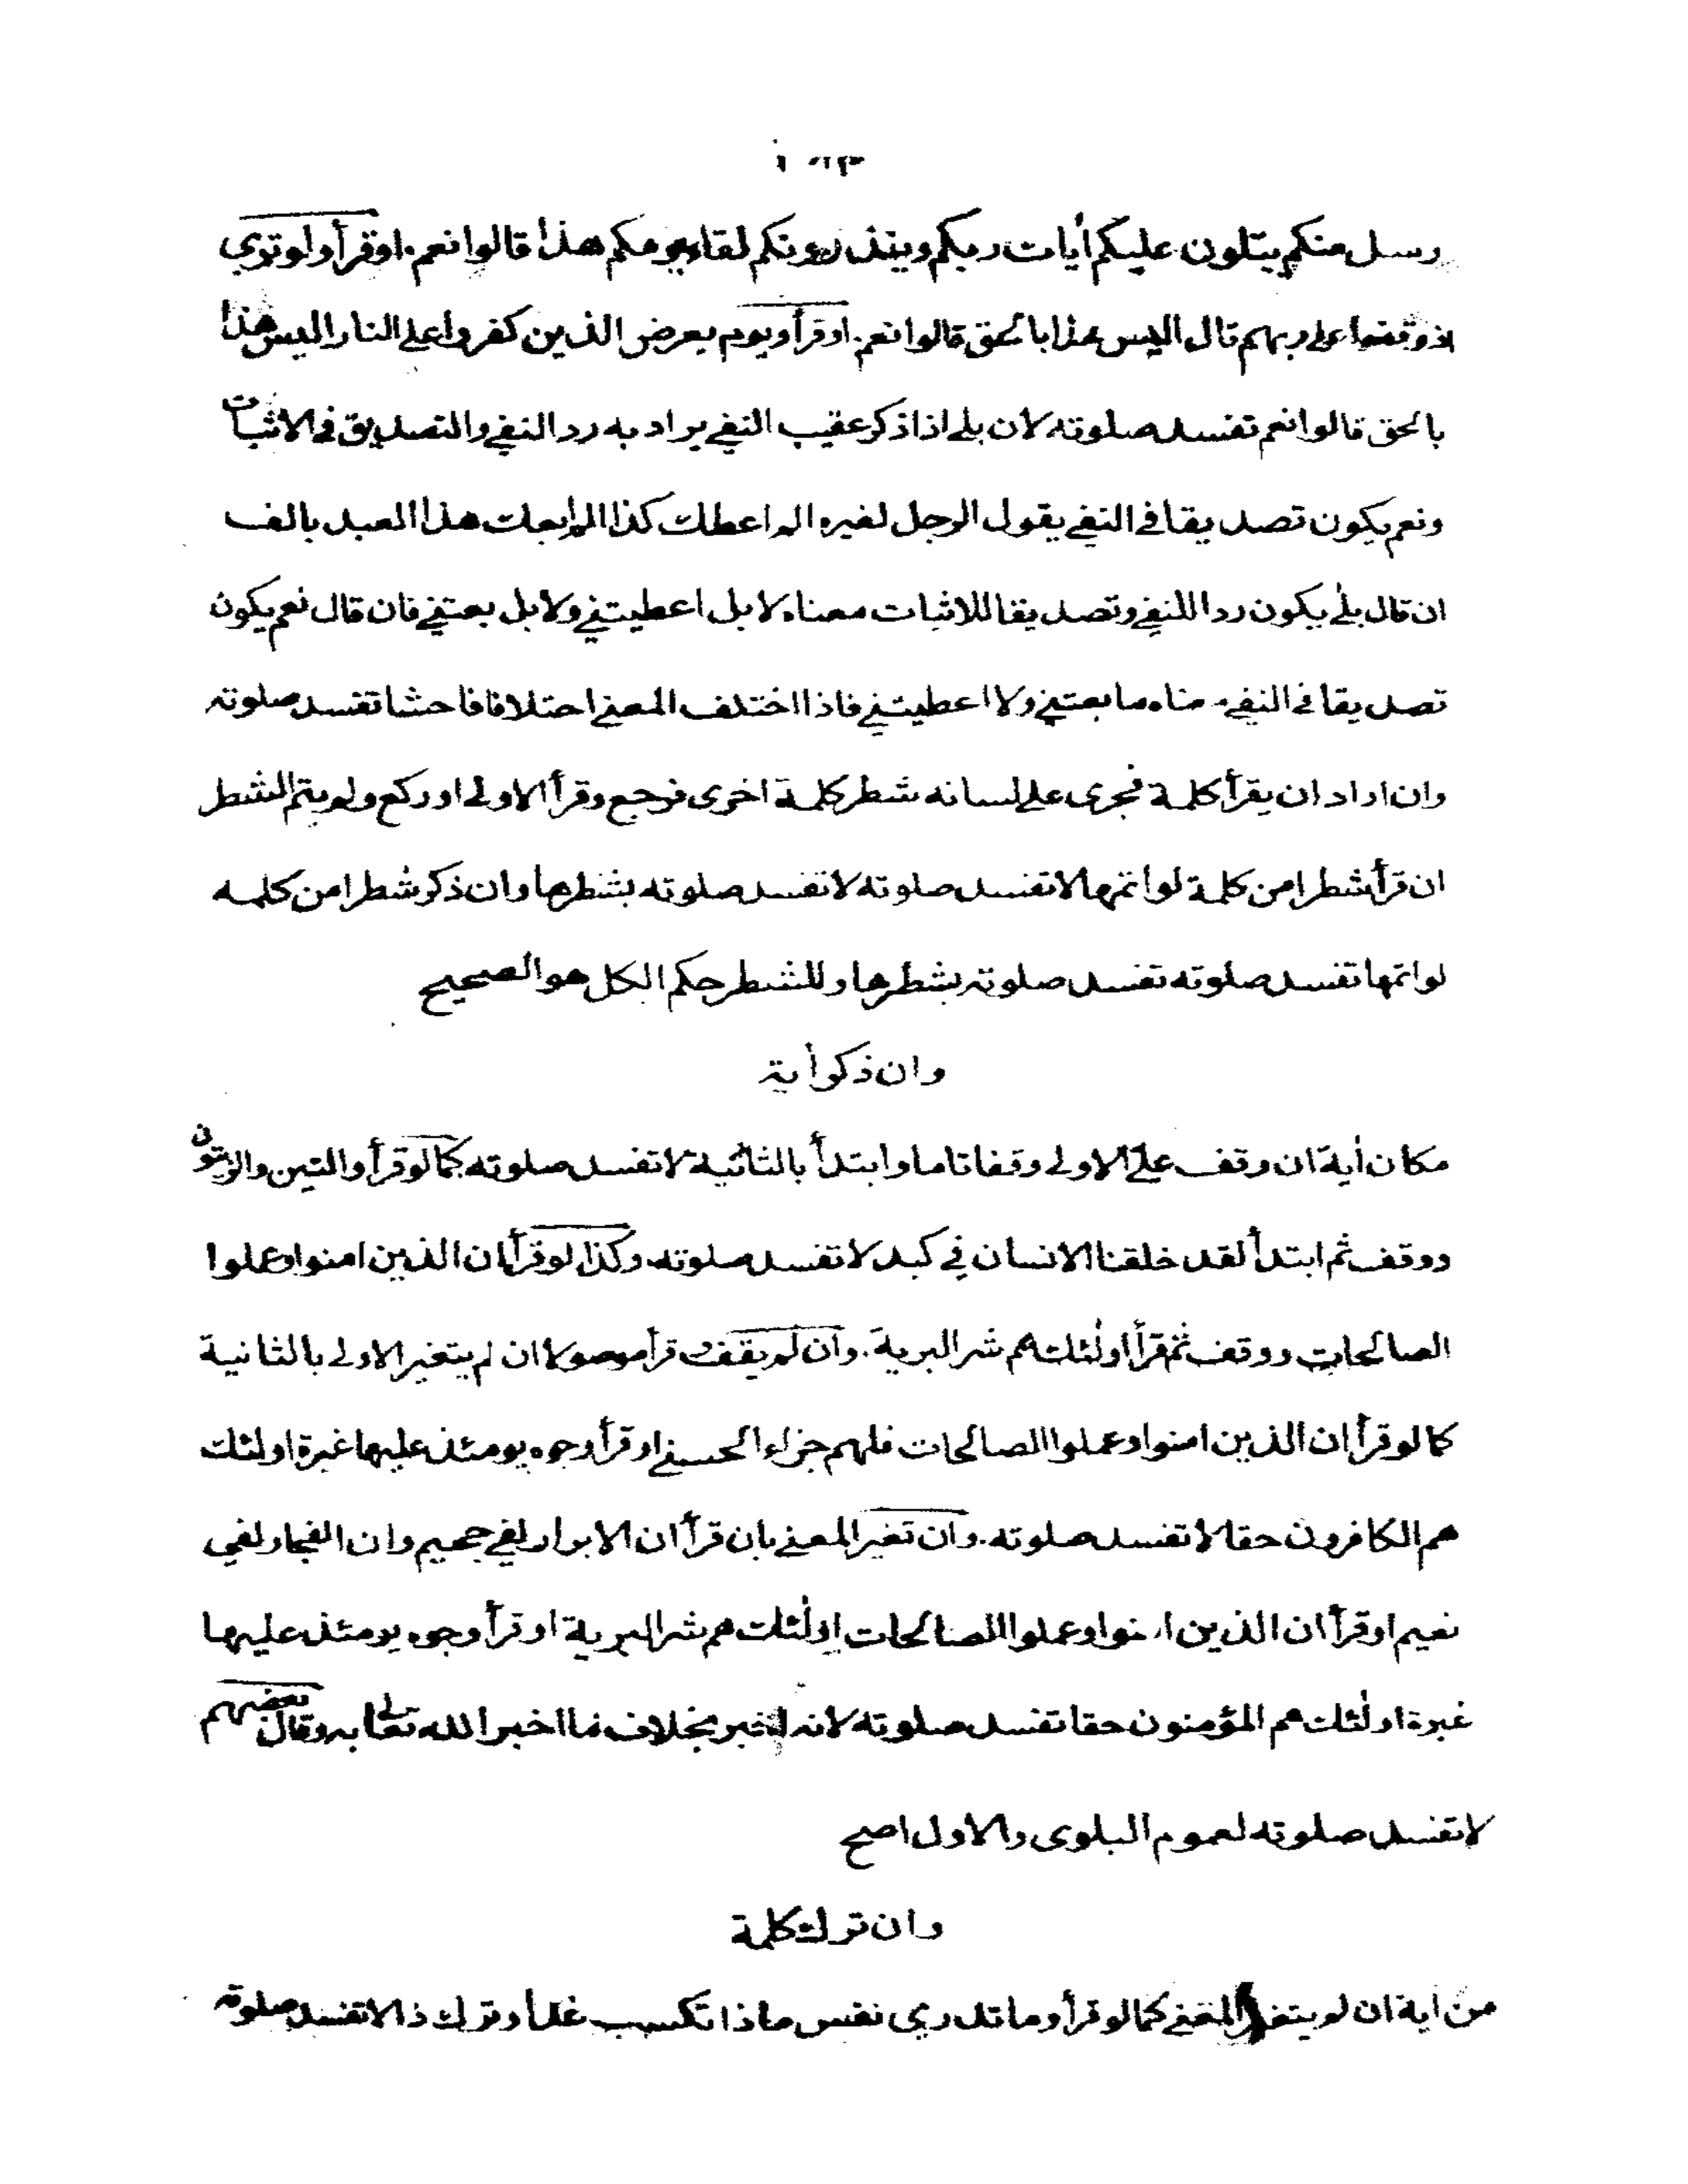 رسل منكم يتلون عليكم أيات ربكم وينذرونكم لقاء يومكم هذا قالوا نعم. اوقرأ ولو تري
اذ وقفوا على ربهم قال اليس هذا بالحق قالوا نعم. اوقرأ ويوم يعرض الذين كفروا على النار اليس هذا
بالحق قالوا نعم تفسد صلوته لان بلے اذا ذكر عقيب النفے يراد به رد النفے والتصديق فے الاثبات
ونعم يكون تصديقا فے النفے يقول الرجل لغيره الم اعطك كذا الم ابعك هذا العبد بالف
ان قال بلے يكون ردا للنفے وتصديقا للاثبات معناه لا بل اعطيتنے ولا بل بعتنے فان قال نعم يكون
تصديقا فے النفے معناه ما بعتنے ولا اعطيتنے فاذا اختلف المعنے اختلافا فاحشا تفسد صلوته
وان اراد ان يقرأ كلمة فجرى على لسانه شطر كلمة اخرى فرجع وقرأ الاولے او ركع ولم يتم الشطر
ان قرأ شطرا من كلمة لو اتمها لا تفسد صلوته لا تفسد صلوته بشطرها وان ذكر شطرا من كلمة
لو اتمها تفسد صلوته تفسد صلوته بشطرها وللشطر حكم الكل هو الصحيح
وان ذكر أية
مكان أية ان وقف علے الاولے وقفا تاما وابتدأ بالثانية لا تفسد صلوته كما لو قرأ والتين والزيتون
ووقف ثم ابتدأ لقد خلقنا الانسان في كبد لا تفسد صلوته. وكذا لو قرأ ان الذين امنوا وعملوا
الصالحات ووقف ثم قرأ اولٰئك هم شر البرية. وان لم يقف قرأ موصولا ان لم يتغير الاولے بالثانية
كما لو قرأ ان الذين امنوا وعملوا الصالحات فلهم جزاء الحسنے او قرأ وجوه يومئذ عليها غبرة اولئك
هم الكافرون حقا لا تفسد صلوته. وان تغير المعنے بان قرأ ان الابرار لفي جحيم وان الفجار لفي
نعيم او قرأ ان الذين امنوا وعملوا الصالحات اولٰئك هم شر البرية او قرأ وجوه يومئذ عليها
غبرة اولٰئك هم المؤمنون حقا تفسد صلوته لانه اخبر بخلاف ما اخبر الله تعالى به وقال بعضهم
لا تفسد صلوته لعموم البلوى والاول اصح
وان ترك كلمة
من اية ان لم يتغير المعنے كما لو قرأ وما تدري نفس ماذا تكسب غدا وترك ذا لا تفسد صلوته